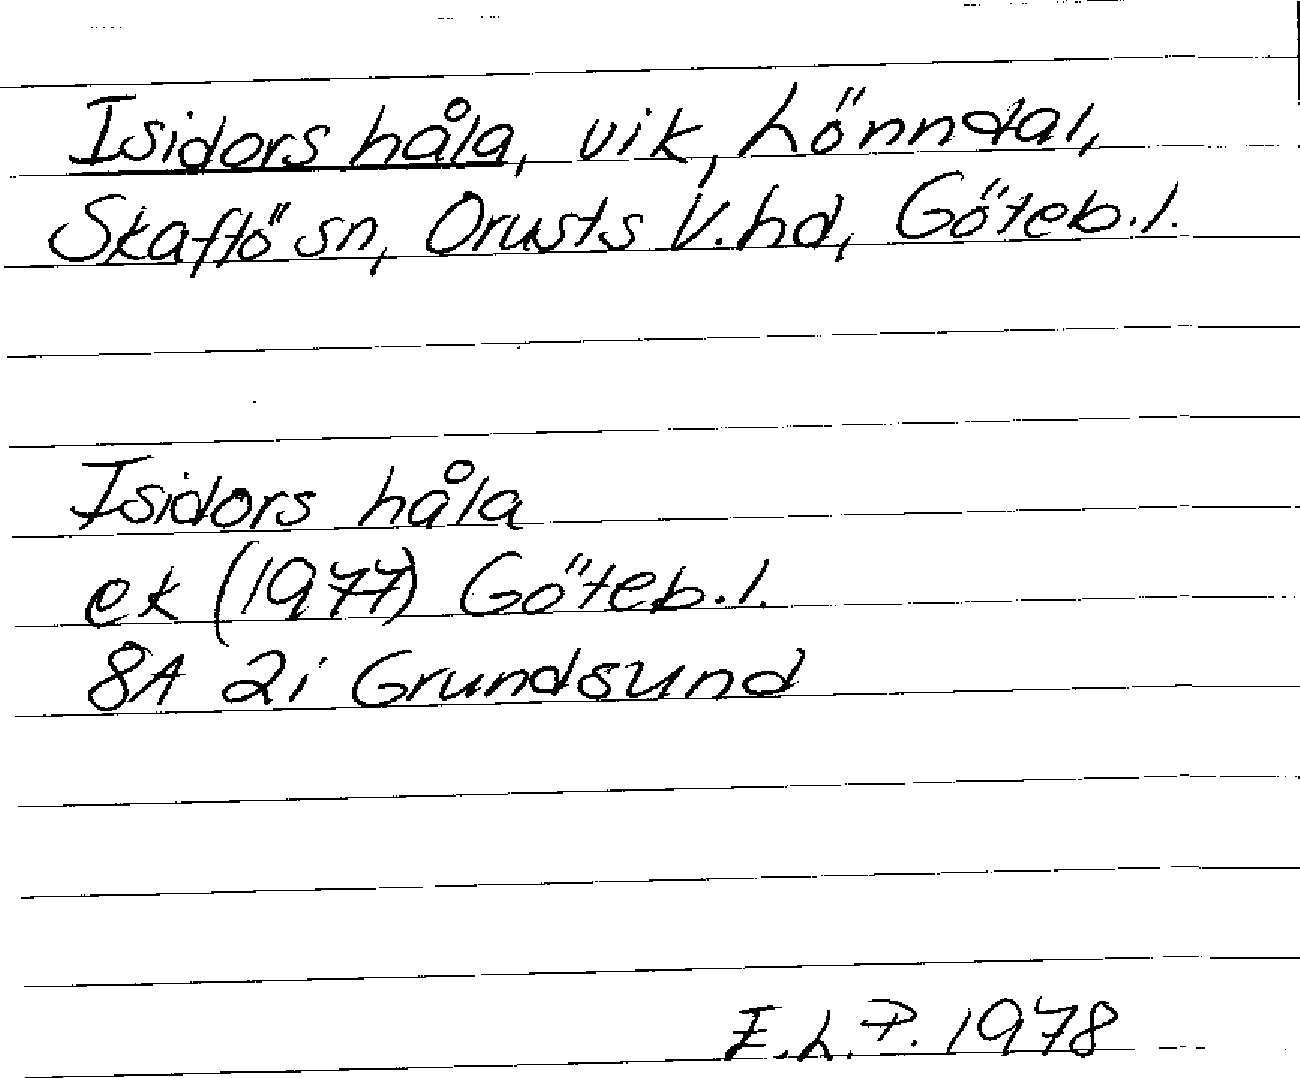 Isidors håla, vik, Lönndal,
Skaftö sn, Orusts V. hd, Göteb. l.
Isidors håla
ek (1977) Göteb. l.
8A 2i Grundsund
E.L.P. 1978